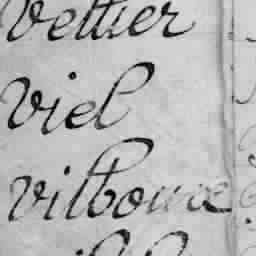 Vettier
Viel
Vilbouce